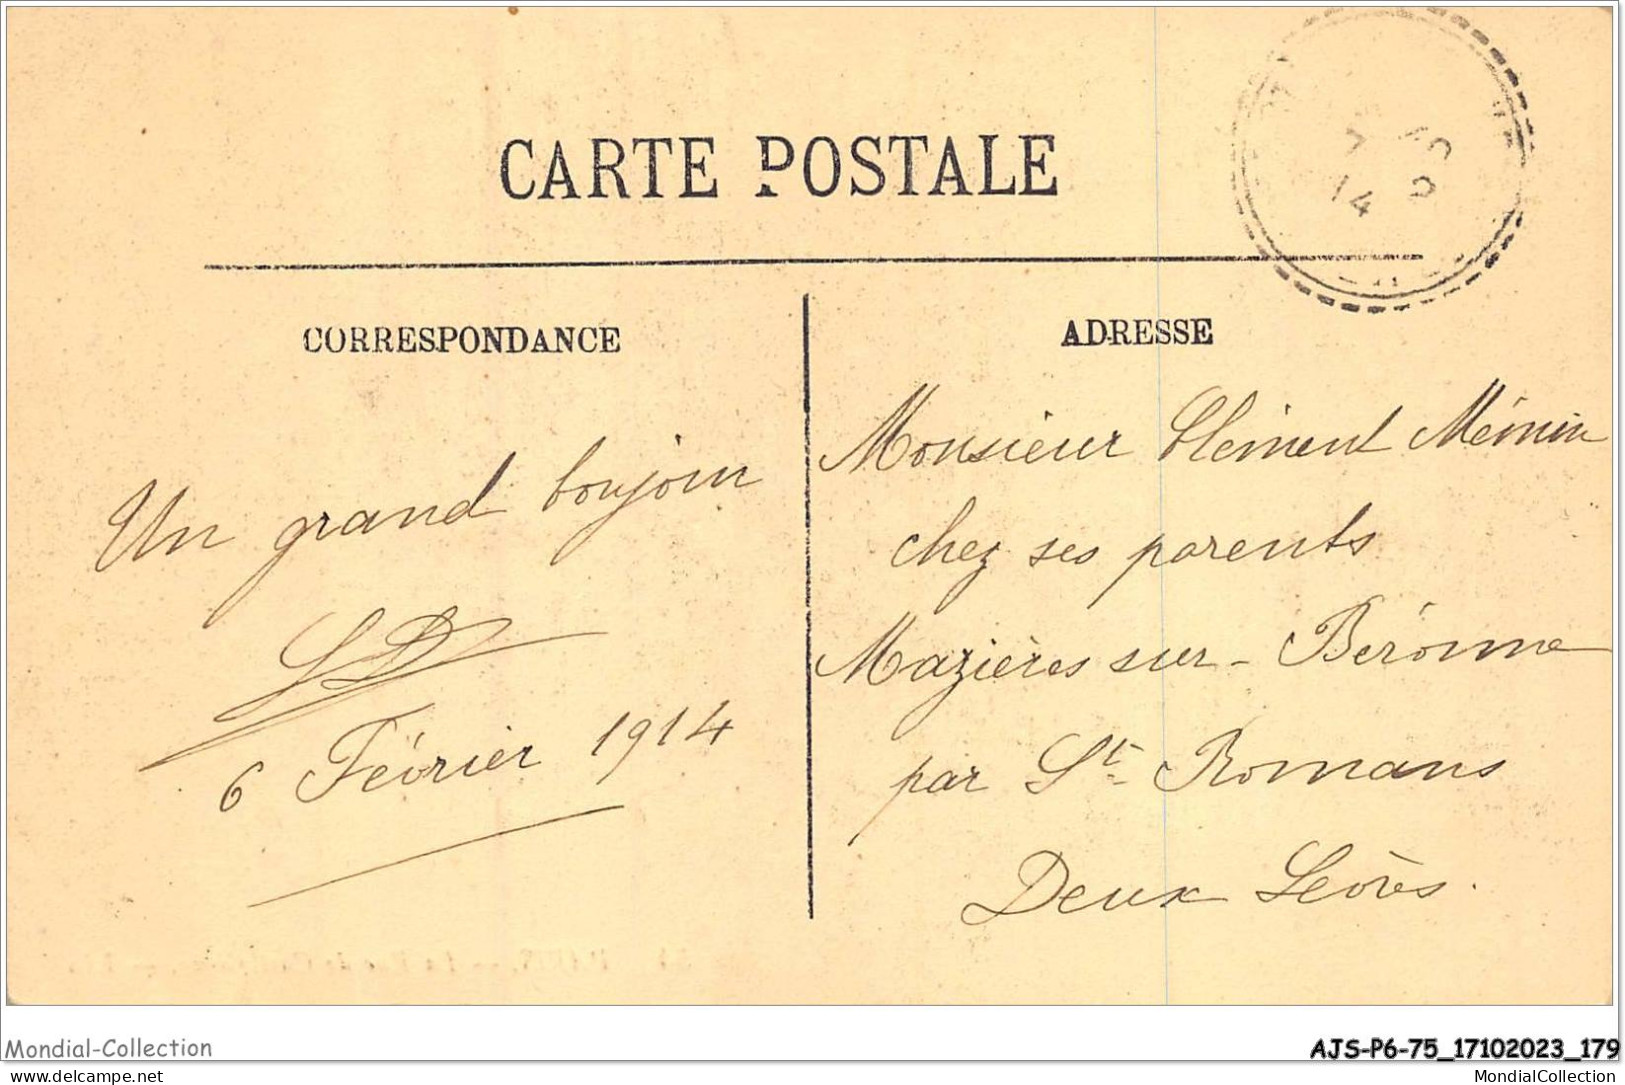 CARTE POSTALE
7 40
14 2
CORRESPONDANCE
ADRESSE
Un grand bonjour
6 Février 1914
Monsieur Clément Mémin
chez ses parents
Mazières sur - Béronne
par St. Romans
Deux Sèvres.
Mondial-Collection
AJS-P6-75_17102023_179
delcampe.net
MondialCollection